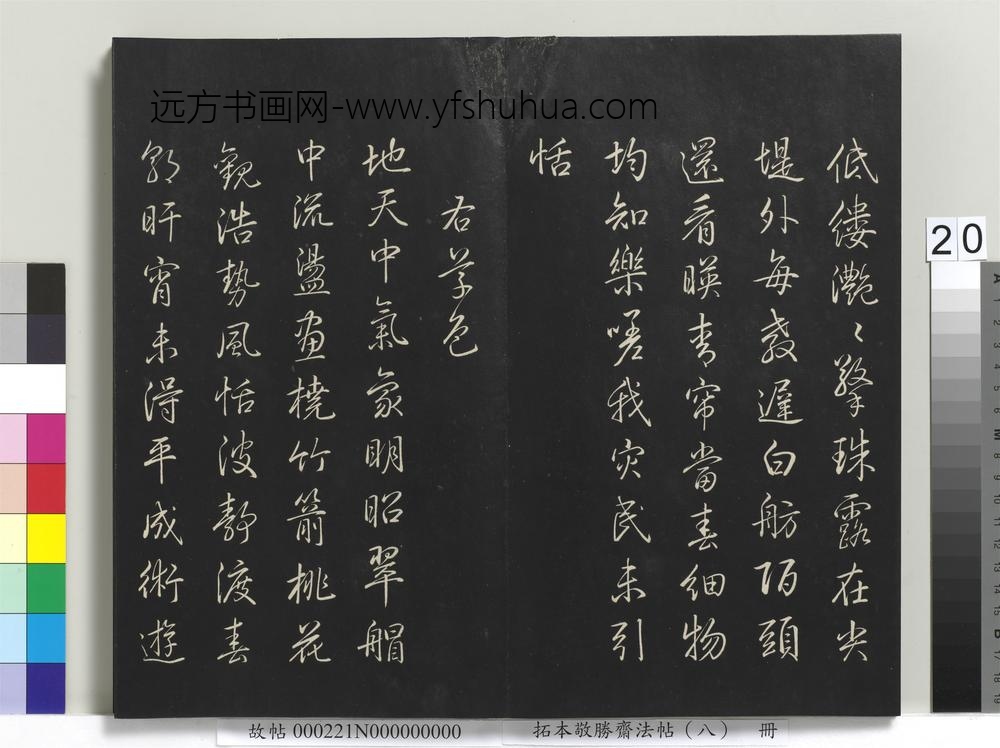 远方书画网-www.yfshuhua.com
低缕滟〻擎珠露在尖
堤外每教遲白舫陌頭
還看暎青帘當春細物
均知樂嗟我灾民未引
恬
右草色
地天中氣象明昭翠帽
中流盪畫橈竹箭桃花
觀浩勢風恬波靜渡春
旰宵未得平成術遊
20
故帖 000221N000000000
拓本敬勝齋法帖(八) 冊